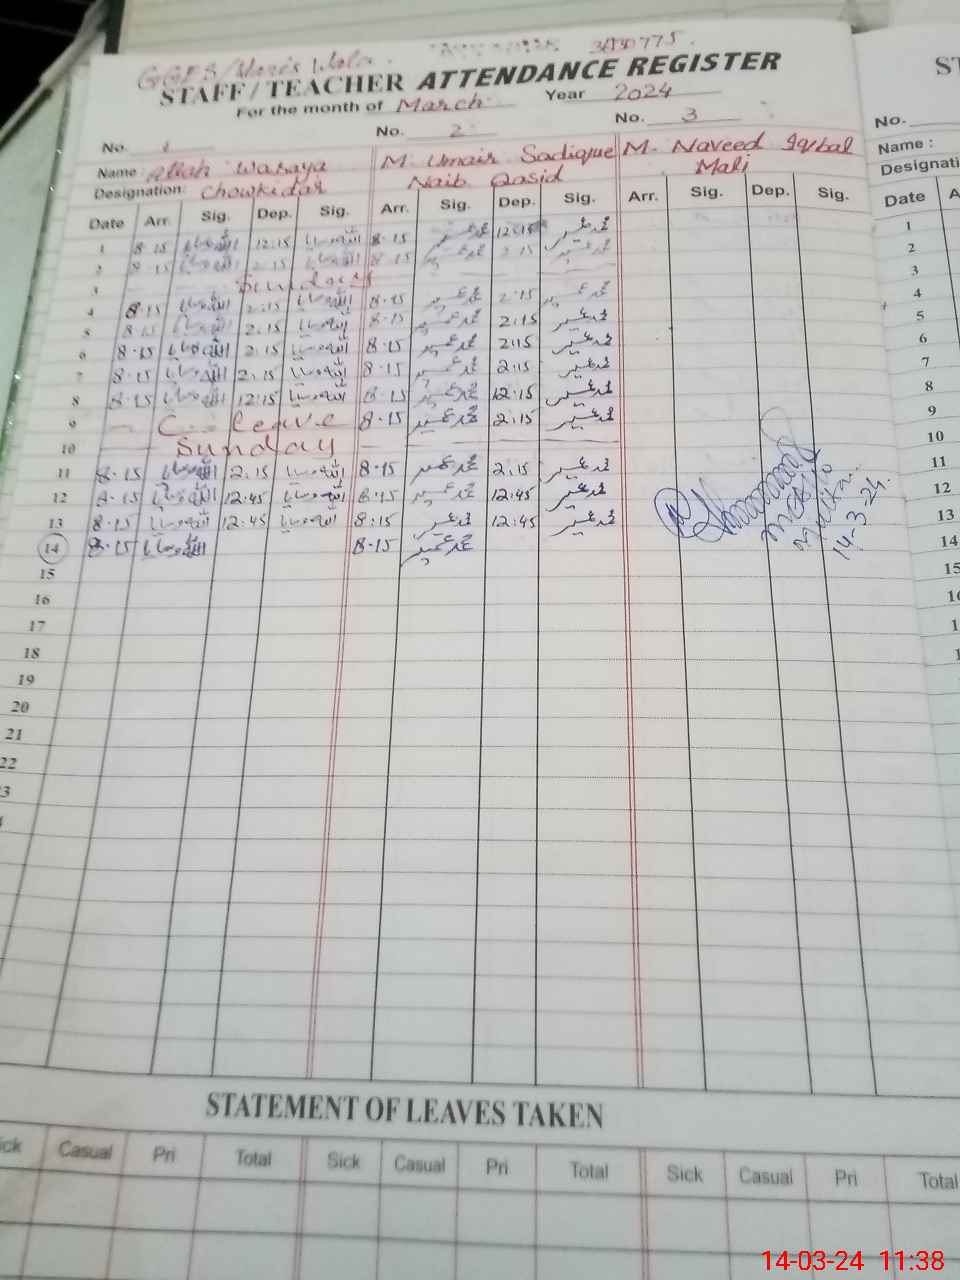 STAFF / TEACHER ATTENDANCE REGISTER
For the month of March Year 2024
No. 1 No. 2 No. 3
Name Allah Wasaya M. Umair Sadique M. Naveed Iqbal
Designation: Chowkidar Naib Qasid Mali
Date Arr. Sig. Dep. Sig. Arr. Sig. Dep. Sig. Arr. Sig. Dep. Sig.
1 8-15 اللہ وسایا 12:15 اللہ وسایا 8-15 محمد عمیر 12:15 محمد عمیر
2 8-15 اللہ وسایا 2:15 اللہ وسایا 8-15 محمد عمیر 2:15 محمد عمیر
3 Sunday
4 8-15 اللہ وسایا 2:15 اللہ وسایا 8-15 محمد عمیر 2:15 محمد عمیر
5 8-15 اللہ وسایا 2:15 اللہ وسایا 8-15 محمد عمیر 2:15 محمد عمیر
6 8-15 اللہ وسایا 2:15 اللہ وسایا 8-15 محمد عمیر 2:15 محمد عمیر
7 8-15 اللہ وسایا 2:15 اللہ وسایا 8-15 محمد عمیر 2:15 محمد عمیر
8 8-15 اللہ وسایا 12:15 اللہ وسایا 8-15 محمد عمیر 12:15 محمد عمیر
9 C. Leave 8-15 محمد عمیر 2:15 محمد عمیر
10 Sunday
11 8-15 اللہ وسایا 2:15 اللہ وسایا 8-15 محمد عمیر 2:15 محمد عمیر
12 8-15 اللہ وسایا 12:45 اللہ وسایا 8-15 محمد عمیر 12:45 محمد عمیر
13 8-15 اللہ وسایا 12:45 اللہ وسایا 8:15 محمد عمیر 12:45 محمد عمیر
14 8-15 اللہ وسایا 8-15 محمد عمیر
14-3-24.
15
16
17
18
19
20
21
22
STATEMENT OF LEAVES TAKEN
Casual Pri Total Sick Casual Pri Total Sick Casual Pri Total
No.
Name :
Date
1
2
3
4
5
6
7
8
9
10
11
12
13
14
15
14-03-24 11:38